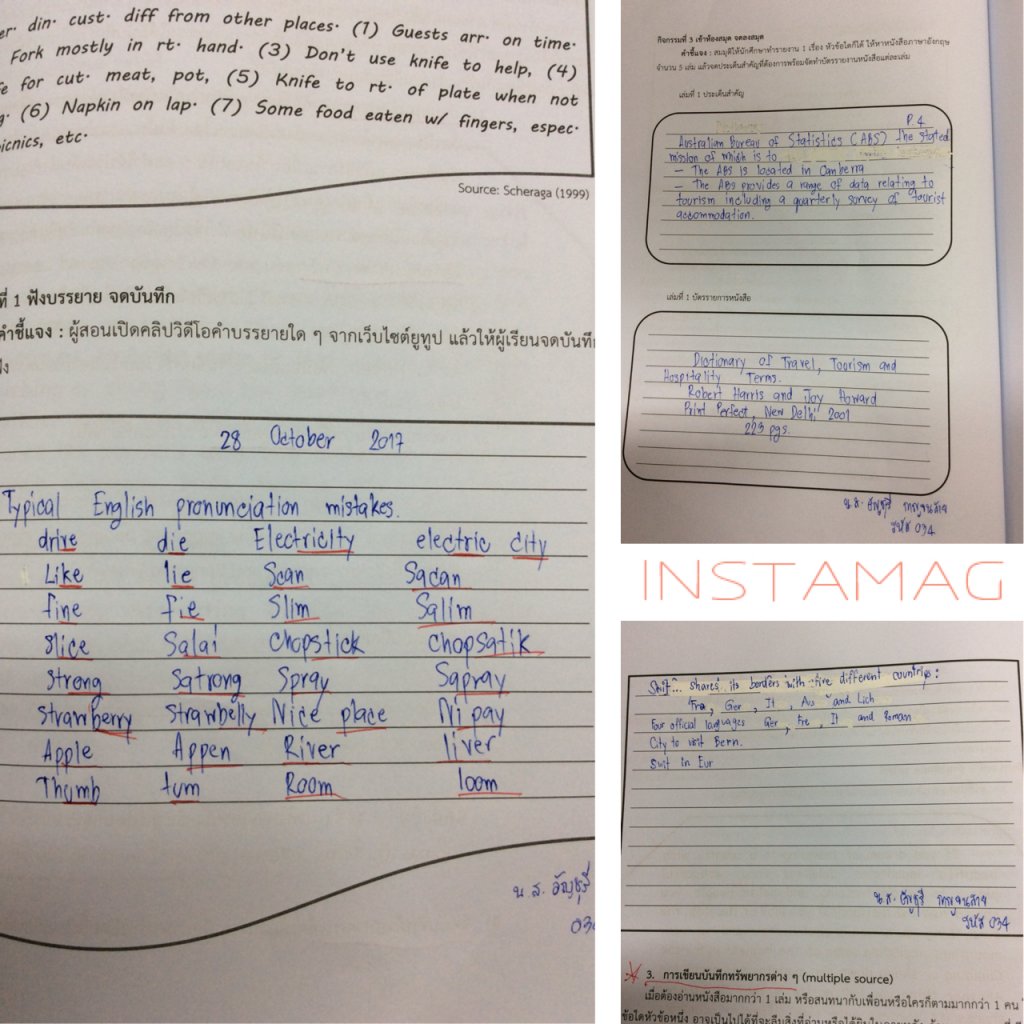 er. din. cust. diff from other places. (1) Guests arr. on time.
Fork mostly in rt. hand. (3) Don't use knife to help, (4)
e for cut. meat, pot, (5) Knife to rt. of plate when not
g. (6) Napkin on lap. (7) Some food eaten w/ fingers, espec.
picnics, etc.
Source: Scheraga (1999)
ที่ 1 ฟังบรรยาย จดบันทึก
คำชี้แจง : ผู้สอนเปิดคลิปวิดีโอคำบรรยายใด ๆ จากเว็บไซต์ยูทูป แล้วให้ผู้เรียนจดบันทึก
ฟัง
28 October 2017
Typical English pronunciation mistakes.
drive die Electricity electric city
Like lie Scan Sacan
fine fie Slim Salim
slice Salai chopstick chopsatik
strong Satrong Spray Sapray
strawberry strawbelly Nice place Ni pay
Apple Appen River liver
Thumb tum Room loom
น.ส. อัญชุรี
034
กิจกรรมที่ 3 เข้าห้องสมุด จดลงสมุด
คำชี้แจง : สมมุติให้นักศึกษาทำรายงาน 1 เรื่อง หัวข้อใดก็ได้ ให้หาหนังสือภาษาอังกฤษ
จำนวน 5 เล่ม แล้วจดประเด็นสำคัญที่ต้องการพร้อมจัดทำบัตรรายงานหนังสือแต่ละเล่ม
เล่มที่ 1 ประเด็นสำคัญ
P.4
Australian Bureau of Statistics (ABS) the stated
mission of which is to
- The ABS is located in Canberra
- The ABS provides a range of data relating to
tourism including a quarterly survey of tourist
accommodation.
เล่มที่ 1 บัตรรายการหนังสือ
Dictionary of Travel, Tourism and
Hospitality Terms.
Robert Harris and Joy Howard
Print Perfect, New Delhi 2001
223 pgs.
น.ส. อัญชุรี
รหัส 034
INSTAMAG
Swit... shares its borders with five different countries:
Fra, Ger, It, Aus and Lich
Four official languages Ger, Fre, It and Roman
City to visit Bern.
Swit in Eur
น.ส. อัญชุรี
รหัส 034
3. การเขียนบันทึกทรัพยากรต่าง ๆ (multiple source)
เมื่อต้องอ่านหนังสือมากกว่า 1 เล่ม หรือสนทนากับเพื่อนหรือใครก็ตามมากกว่า 1 คน
ข้อใดหัวข้อหนึ่ง อาจเป็นไปได้ที่จะลืมสิ่งที่อ่านหรือได้ยิน